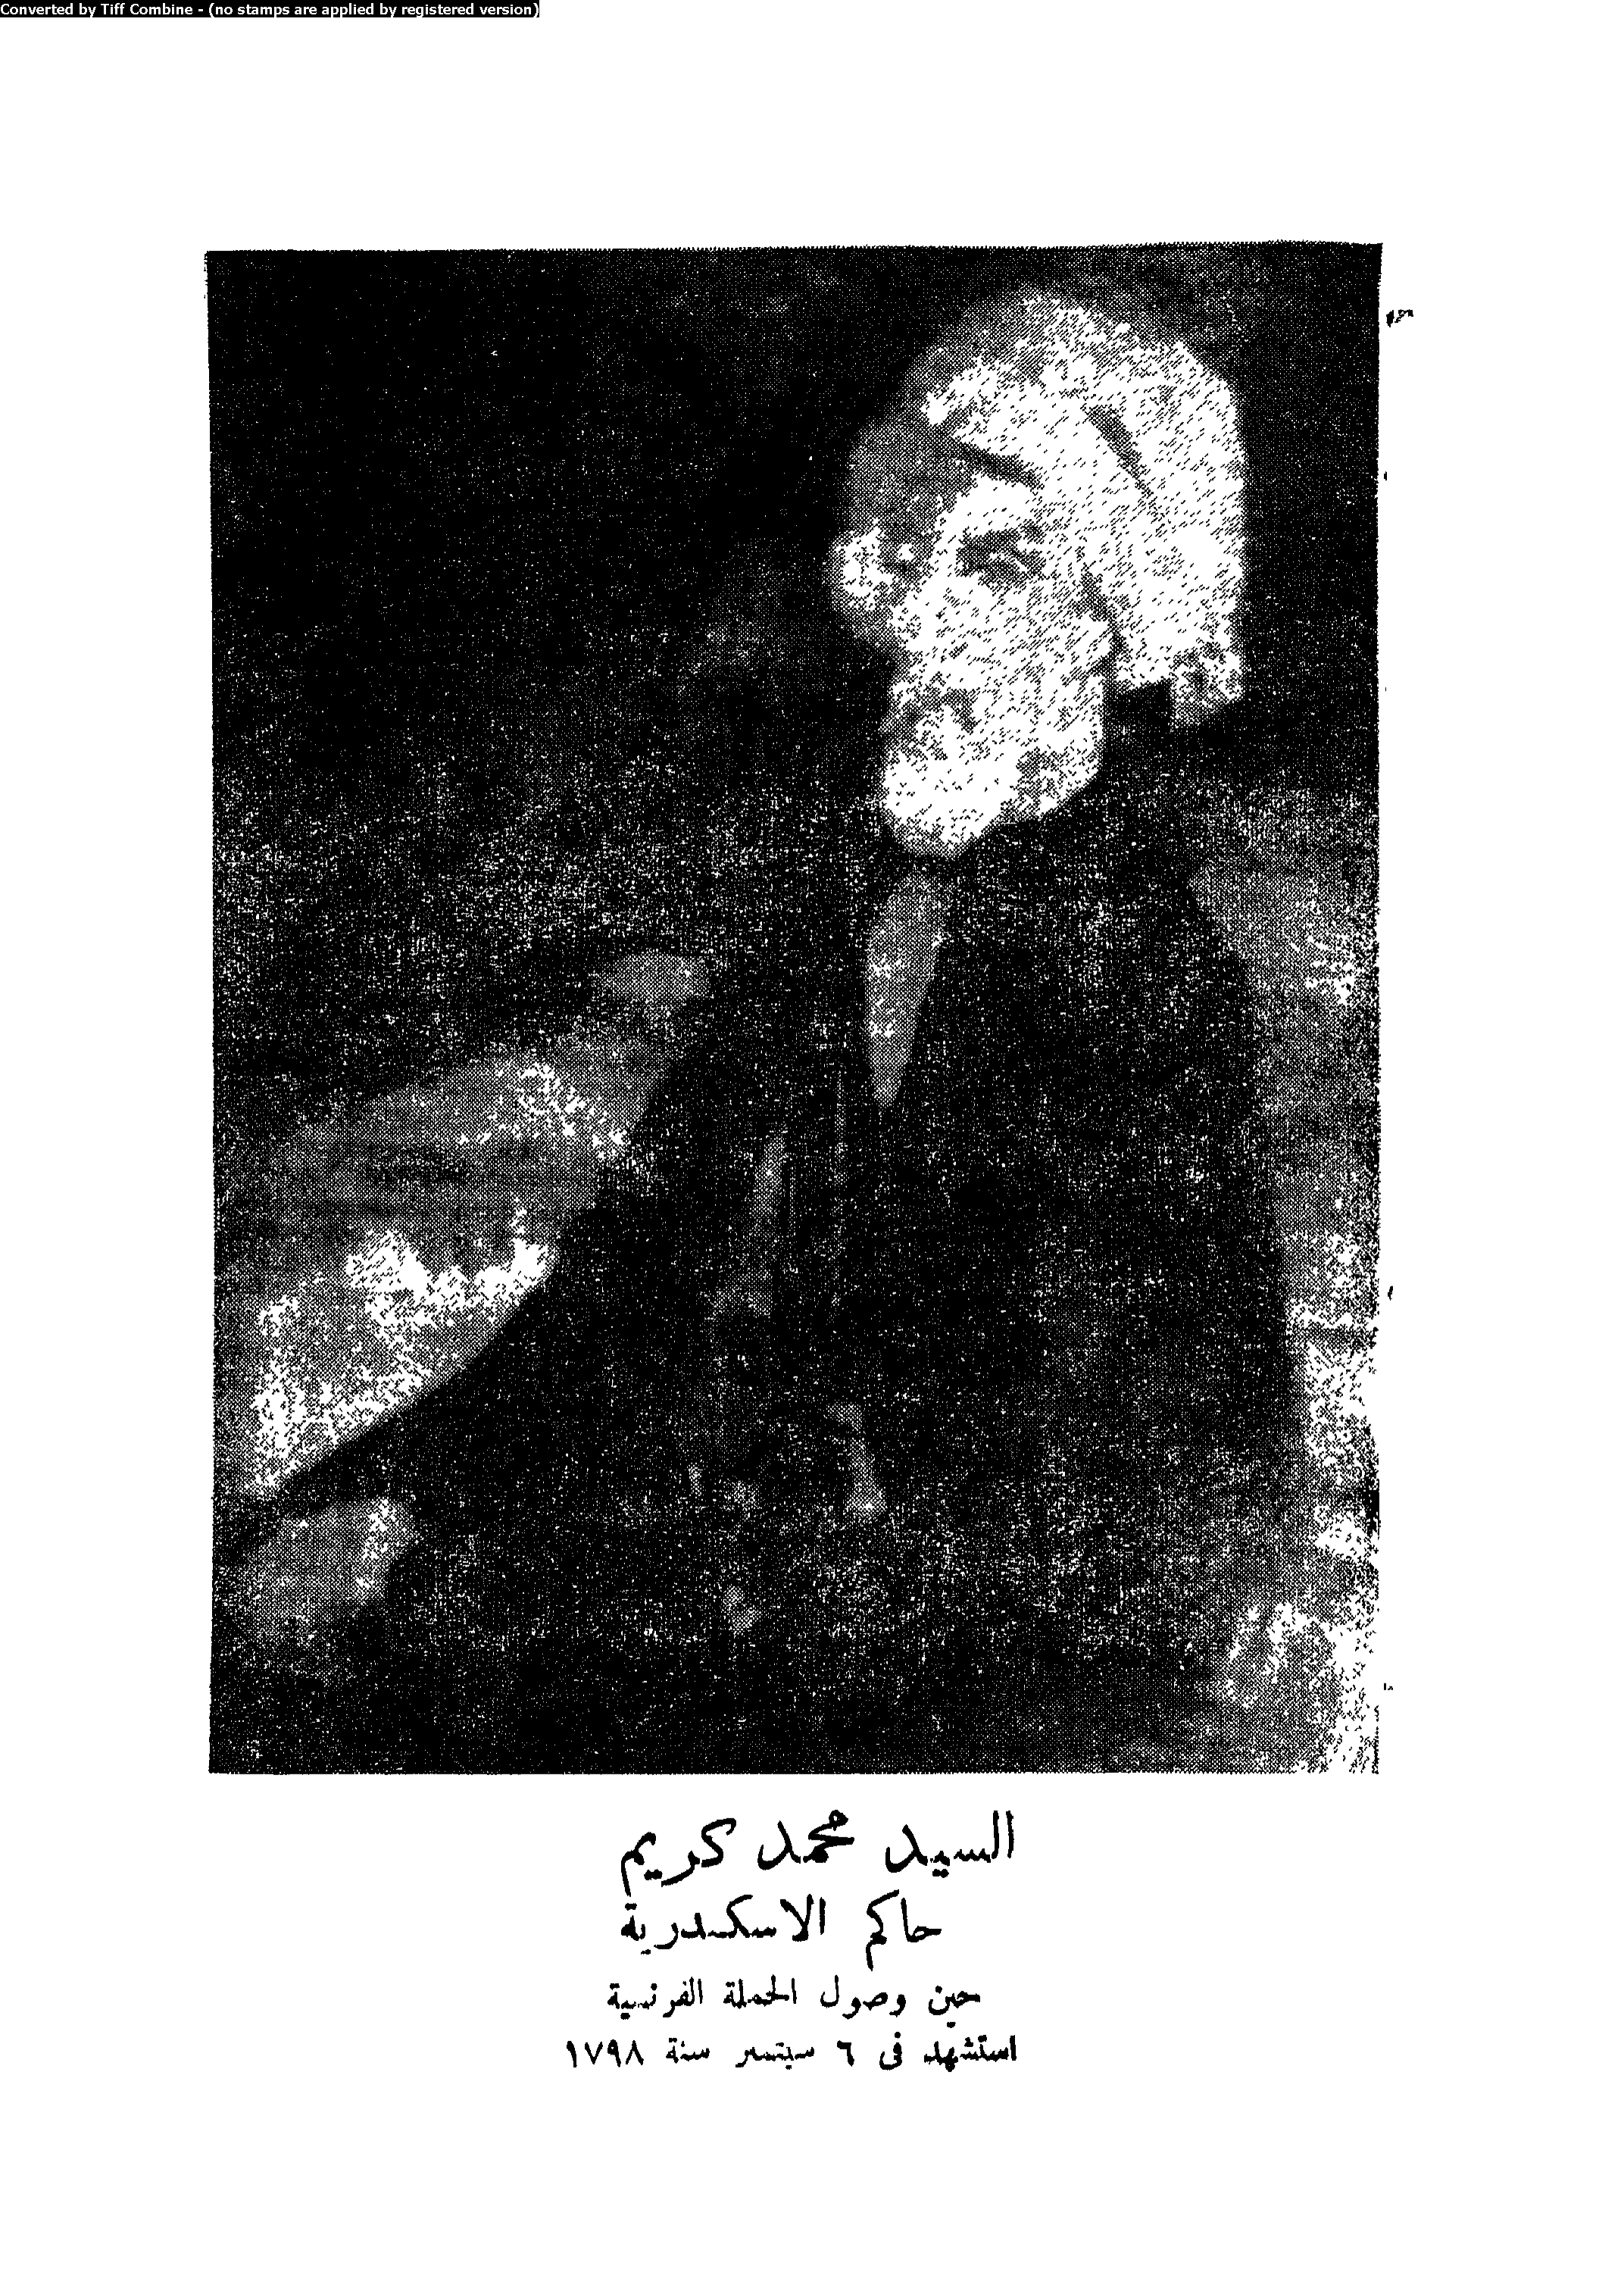 Converted by Tiff Combine - (no stamps are applied by registered version)
السيد محمد كريم
حاكم الاسكندرية
حين وصول الحملة الفرنسية
استشهد فى ٦ سبتمبر سنة ١٧٩٨